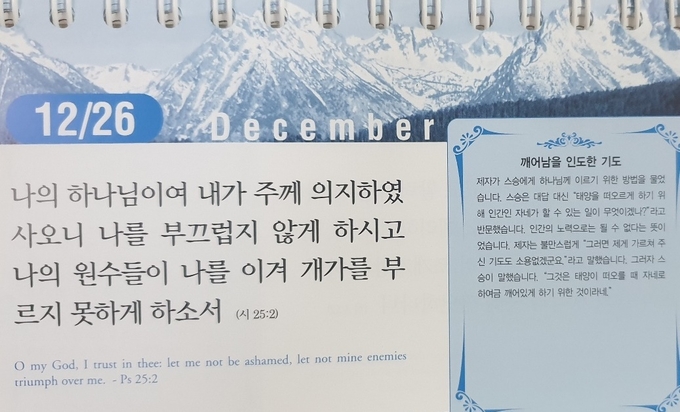 12/26
December
나의 하나님이여 내가 주께 의지하였
사오니 나를 부끄럽지 않게 하시고
나의 원수들이 나를 이겨 개가를 부
르지 못하게 하소서 (시 25:2)
O my God, I trust in thee: let me not be ashamed, let not mine enemies
triumph over me. - Ps 25:2
깨어남을 인도한 기도
제자가 스승에게 하나님께 이르기 위한 방법을 물었
습니다. 스승은 대답 대신 "태양을 떠오르게 하기 위
해 인간인 자네가 할 수 있는 일이 무엇이겠나?"라고
반문했습니다. 인간의 노력으로는 될 수 없다는 뜻이
었습니다. 제자는 불만스럽게 "그러면 제게 가르쳐 주
신 기도도 소용없겠군요."라고 말했습니다. 그러자 스
승이 말했습니다. "그것은 태양이 떠오를 때 자네로
하여금 깨어있게 하기 위한 것이라네."